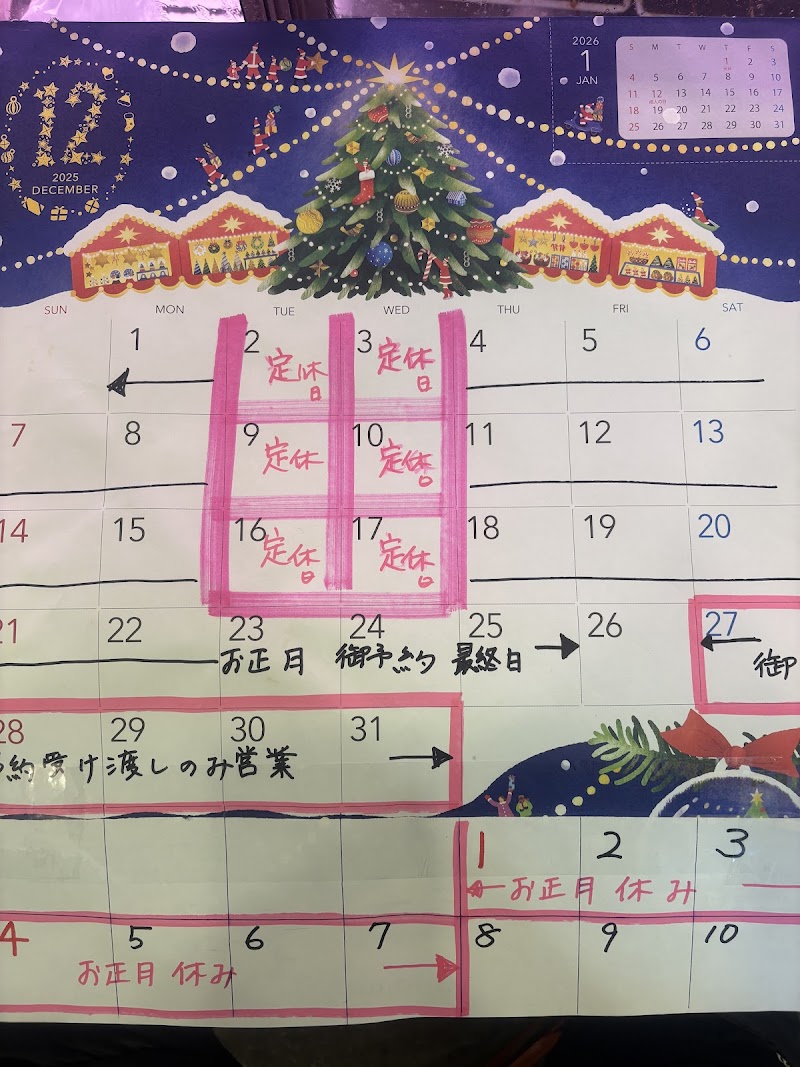 12
2025
DECEMBER
2026
1
JAN
S M T W T F S
1 2 3
4 5 6 7 8 9 10
11 12 13 14 15 16 17
18 19 20 21 22 23 24
25 26 27 28 29 30 31
SUN MON TUE WED THU FRI SAT
1 2 3 4 5 6
定休日 定休日
7 8 9 10 11 12 13
定休 定休日
14 15 16 17 18 19 20
定休日 定休日
21 22 23 24 25 26 27
お正月 御予約 最終日 → ← 御
28 29 30 31
約受け渡しのみ営業 →
1 2 3
← お正月休み
4 5 6 7 8 9 10
お正月休み →